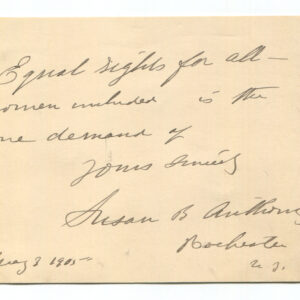 Equal rights for all—
women included is the
one demand of
Yours Sincerely
Susan B Anthony
Rochester
N. Y.
1905—